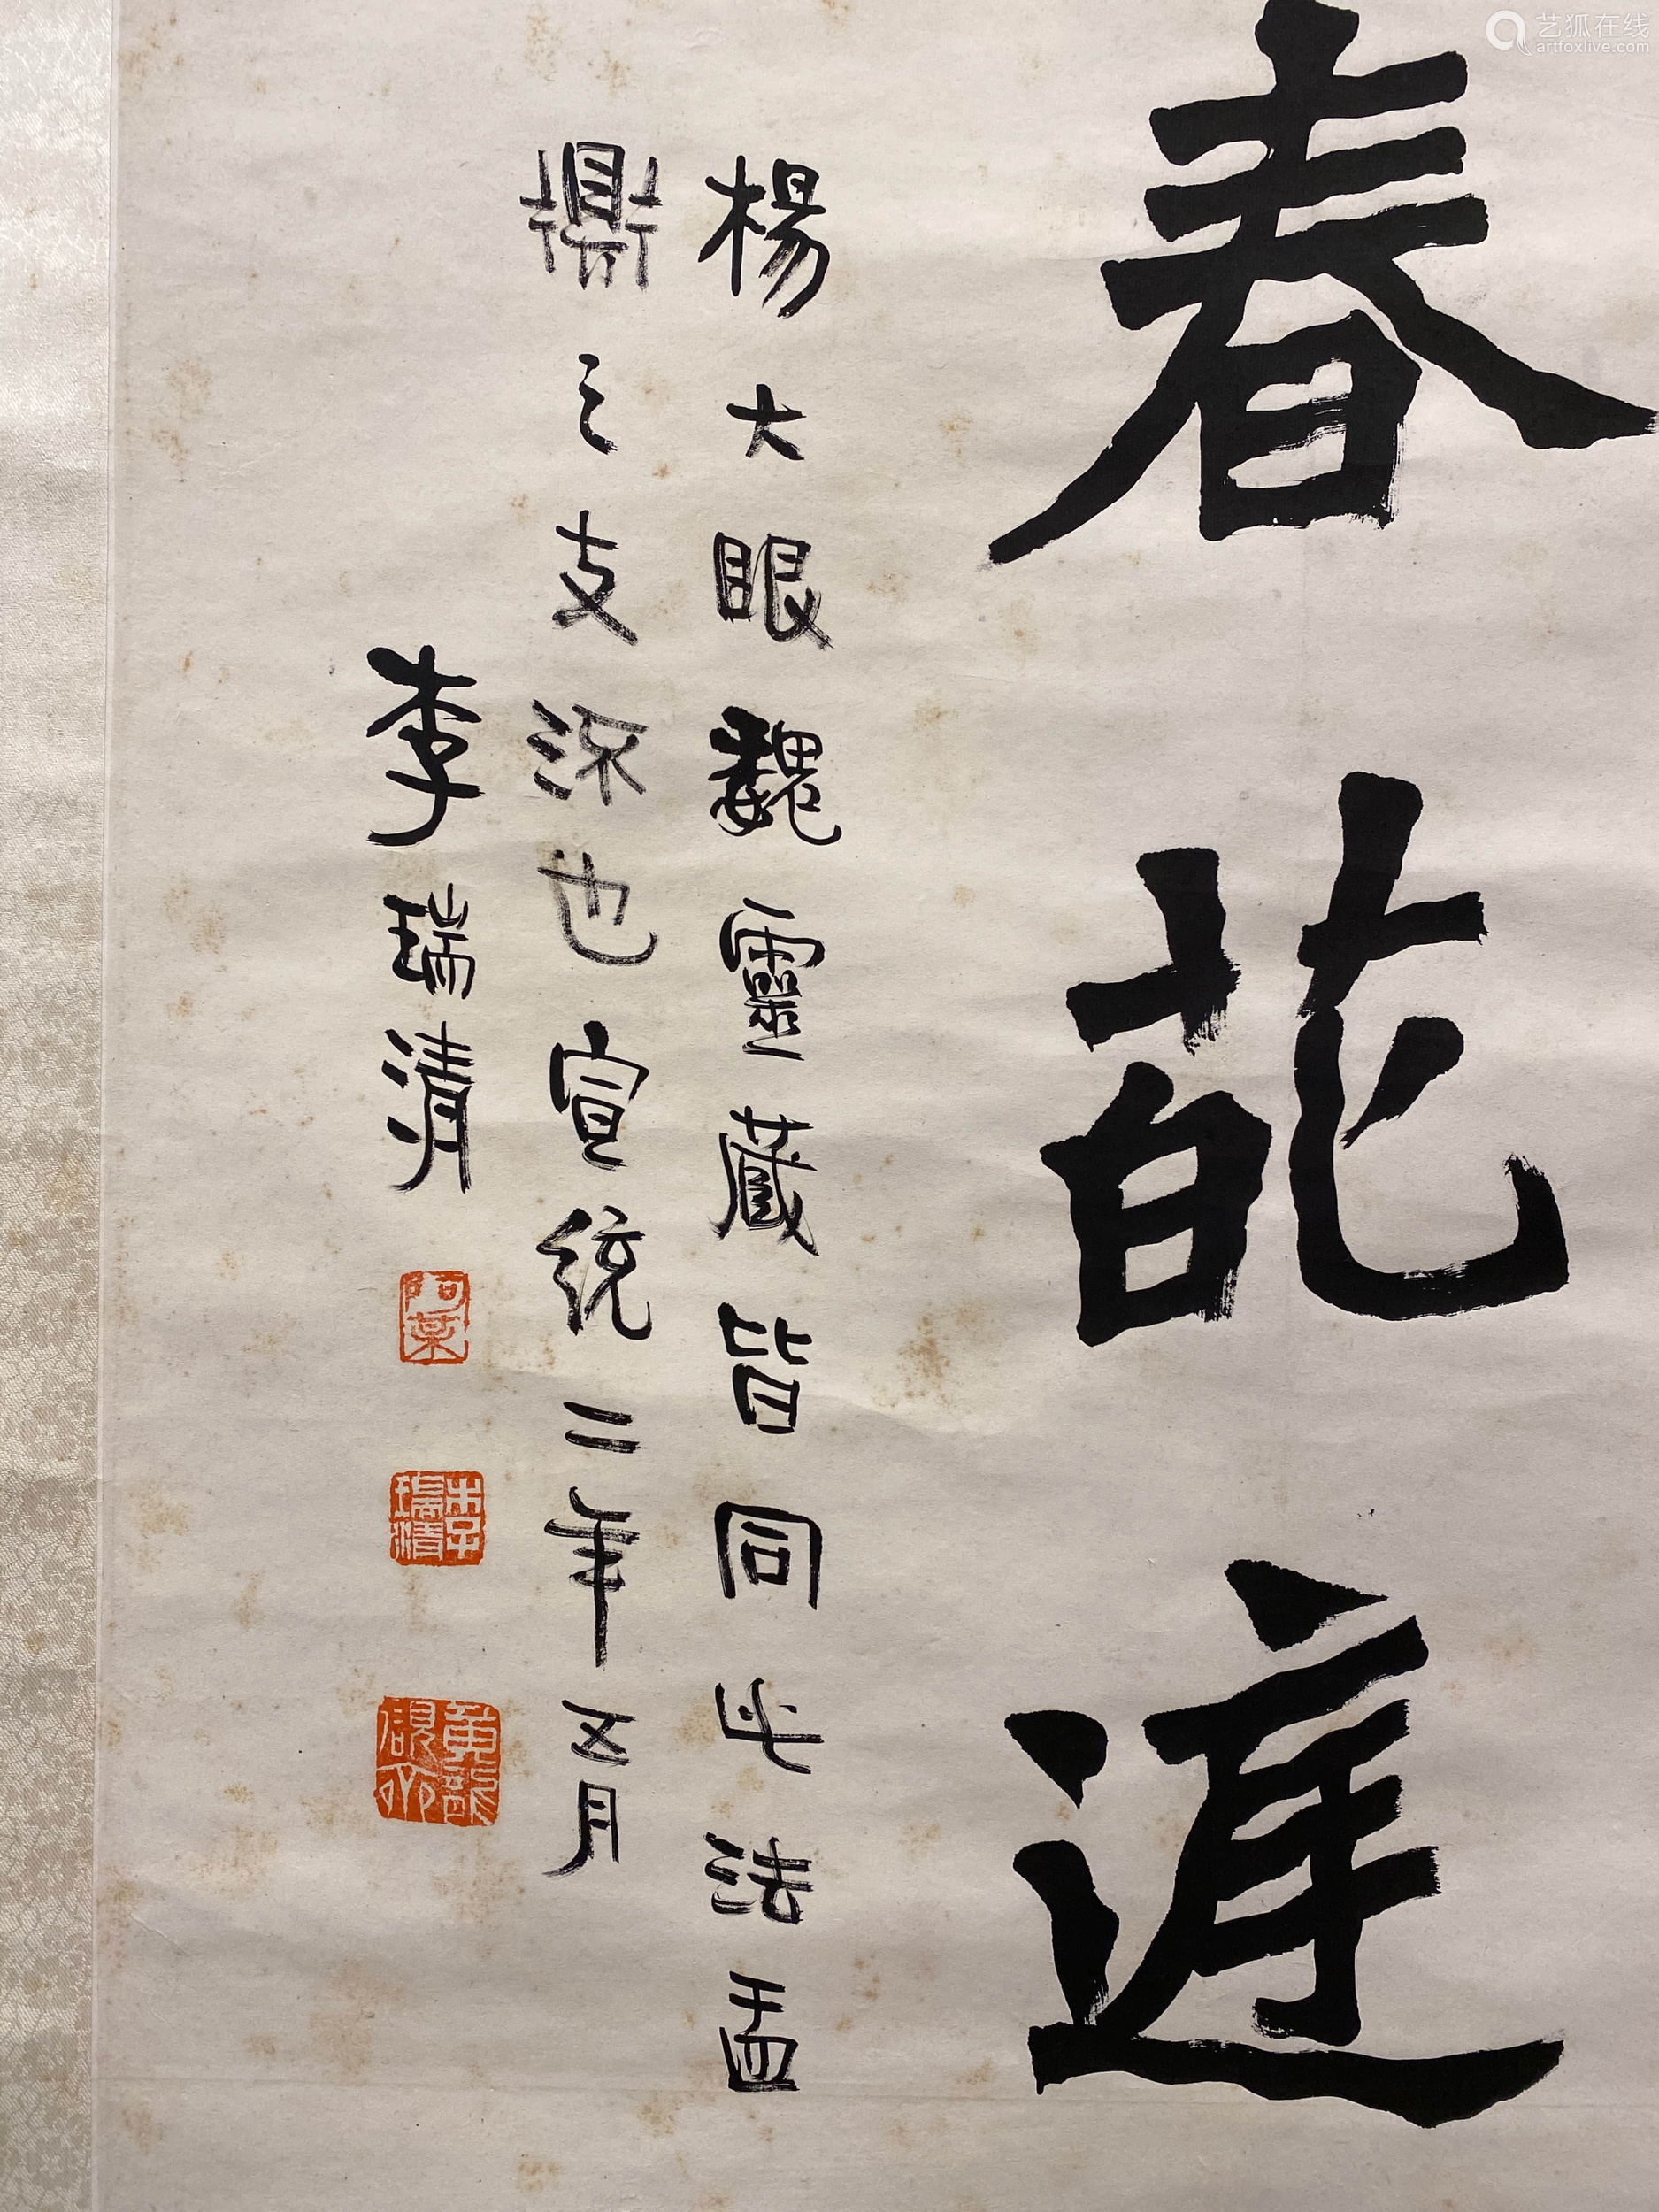 春葩
楊大眼魏靈藏皆同此法盂
鼎之支派也宣統二年五月
李瑞清
阿某
李瑞清
黃龍硯齋
艺狐在线
artfoxlive.com